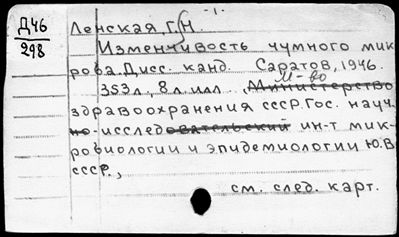 -1.
Д46
298
Ленская, Г.Н.
Изменчивость чумного мик
роба. Дисс. канд. Саратов, 1946.
353л., 8 л. илл. М-во
Министерство
здравоохранения СССР. Гос. науч.
но-исследовательский ин-т мик-
робиологии и эпидемиологии Ю.В
СССР.,
см. след. карт.